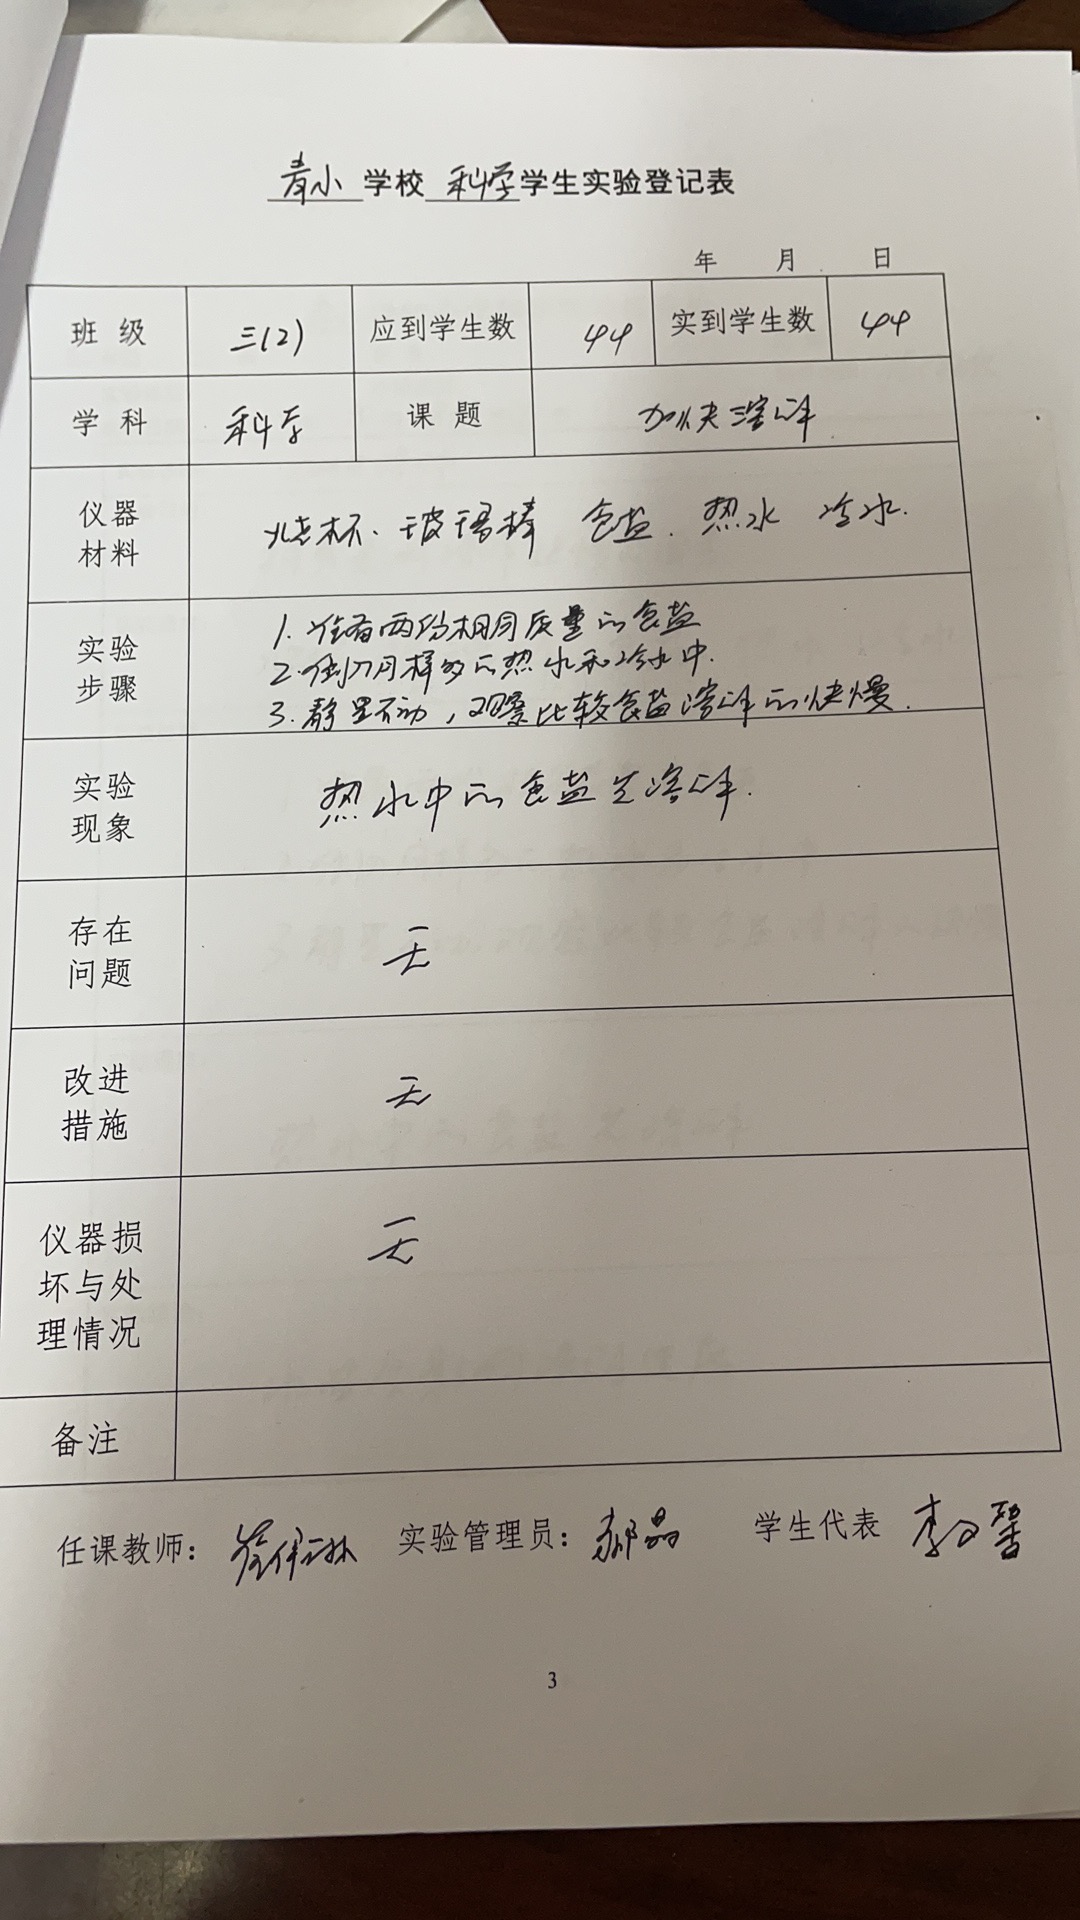 青小 学校 科学 学生实验登记表
年 月 日
班 级 三(2) 应到学生数 44 实到学生数 44
学 科 科学 课 题 加快溶解
仪器
材料
烧杯、玻璃棒 食盐、热水 冷水.
实验
步骤
1. 准备两份相同质量的食盐
2. 倒入同样多的热水和冷水中.
3. 静置不动，观察比较食盐溶解的快慢.
实验
现象
热水中的食盐先溶解.
存在
问题
无
改进
措施
无
仪器损
坏与处
理情况
无
备注
任课教师： 实验管理员：郝晶 学生代表 李
3